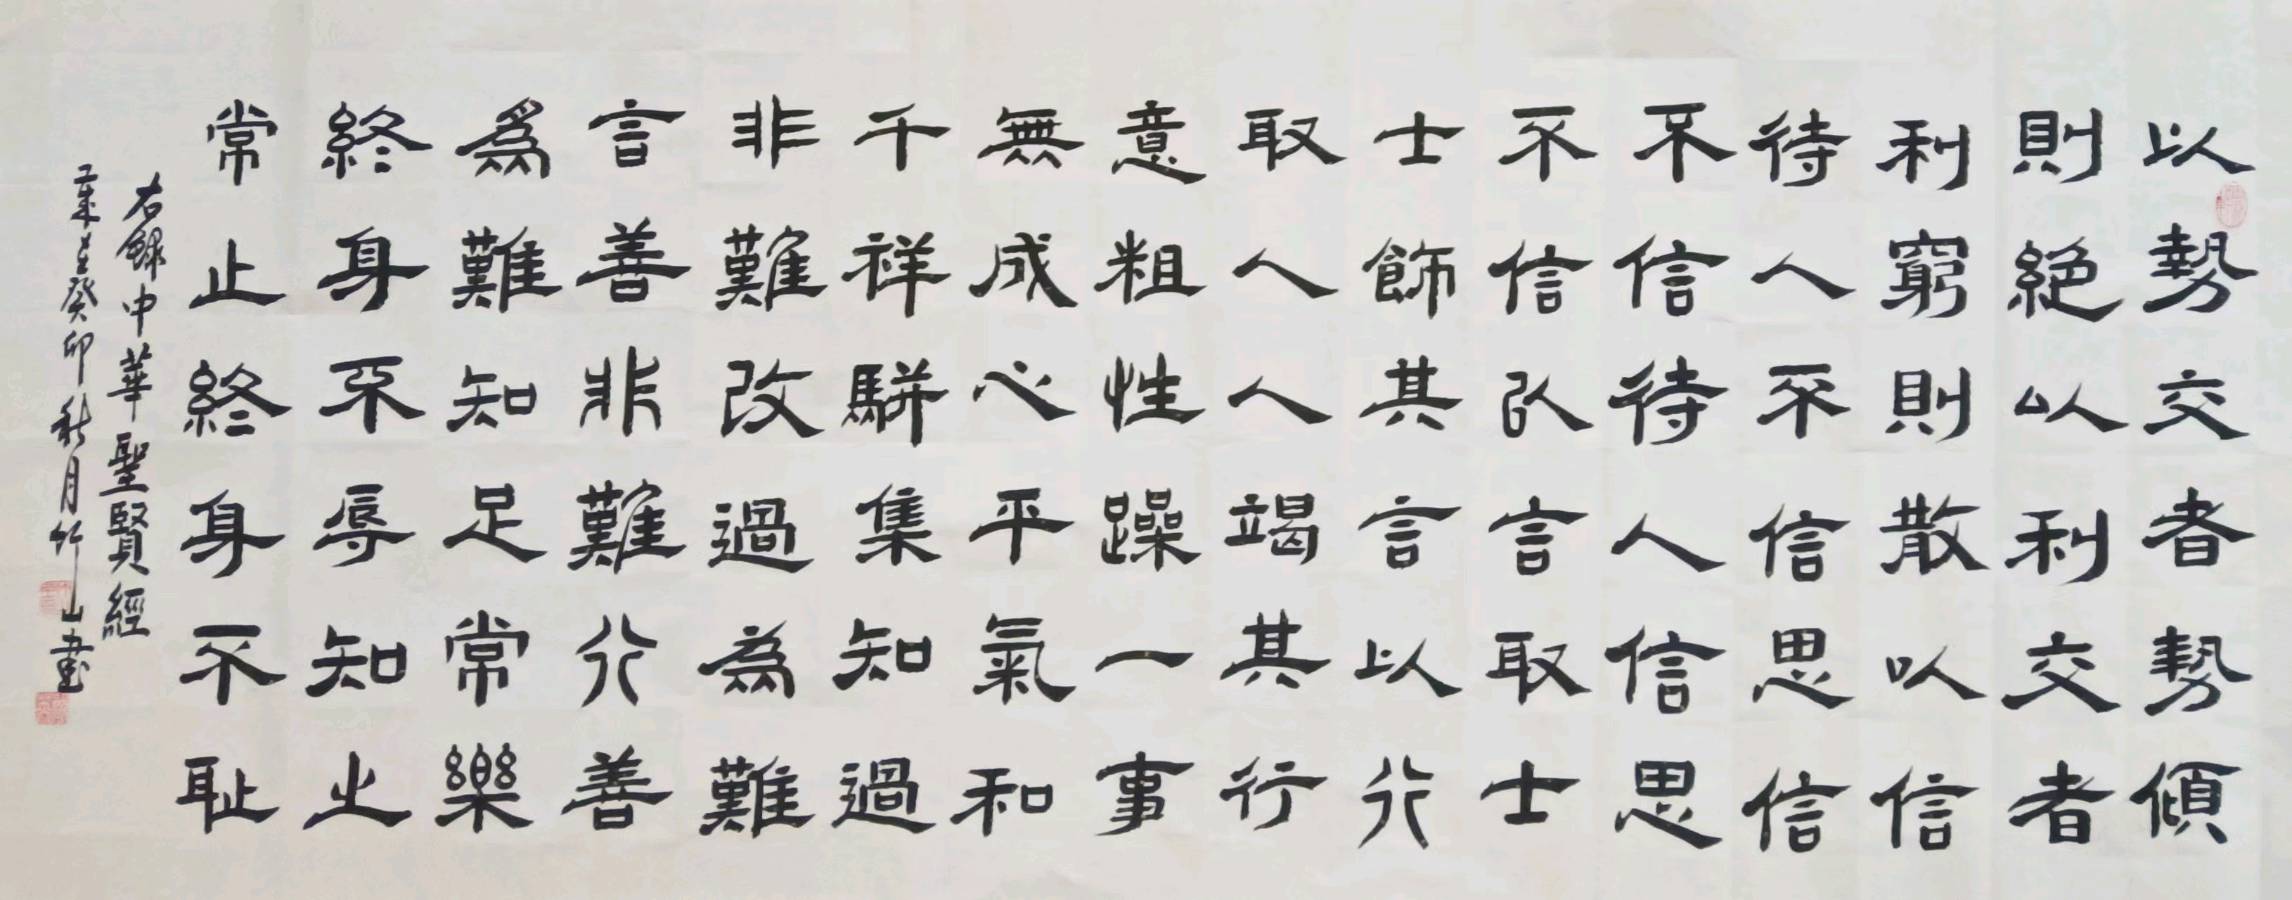 以勢交者勢傾
則絕以利交者
利窮則散以信
待人不信思信
不信待人信思
不信以言取士
士飾其言以行
取人人竭其行
意粗性躁一事
無成心平氣和
千祥駢集知過
非難改過為難
言善非難行善
為難知足常樂
終身不辱知止
常止終身不恥
右錄中華聖賢經
歲在癸卯秋月竹山書